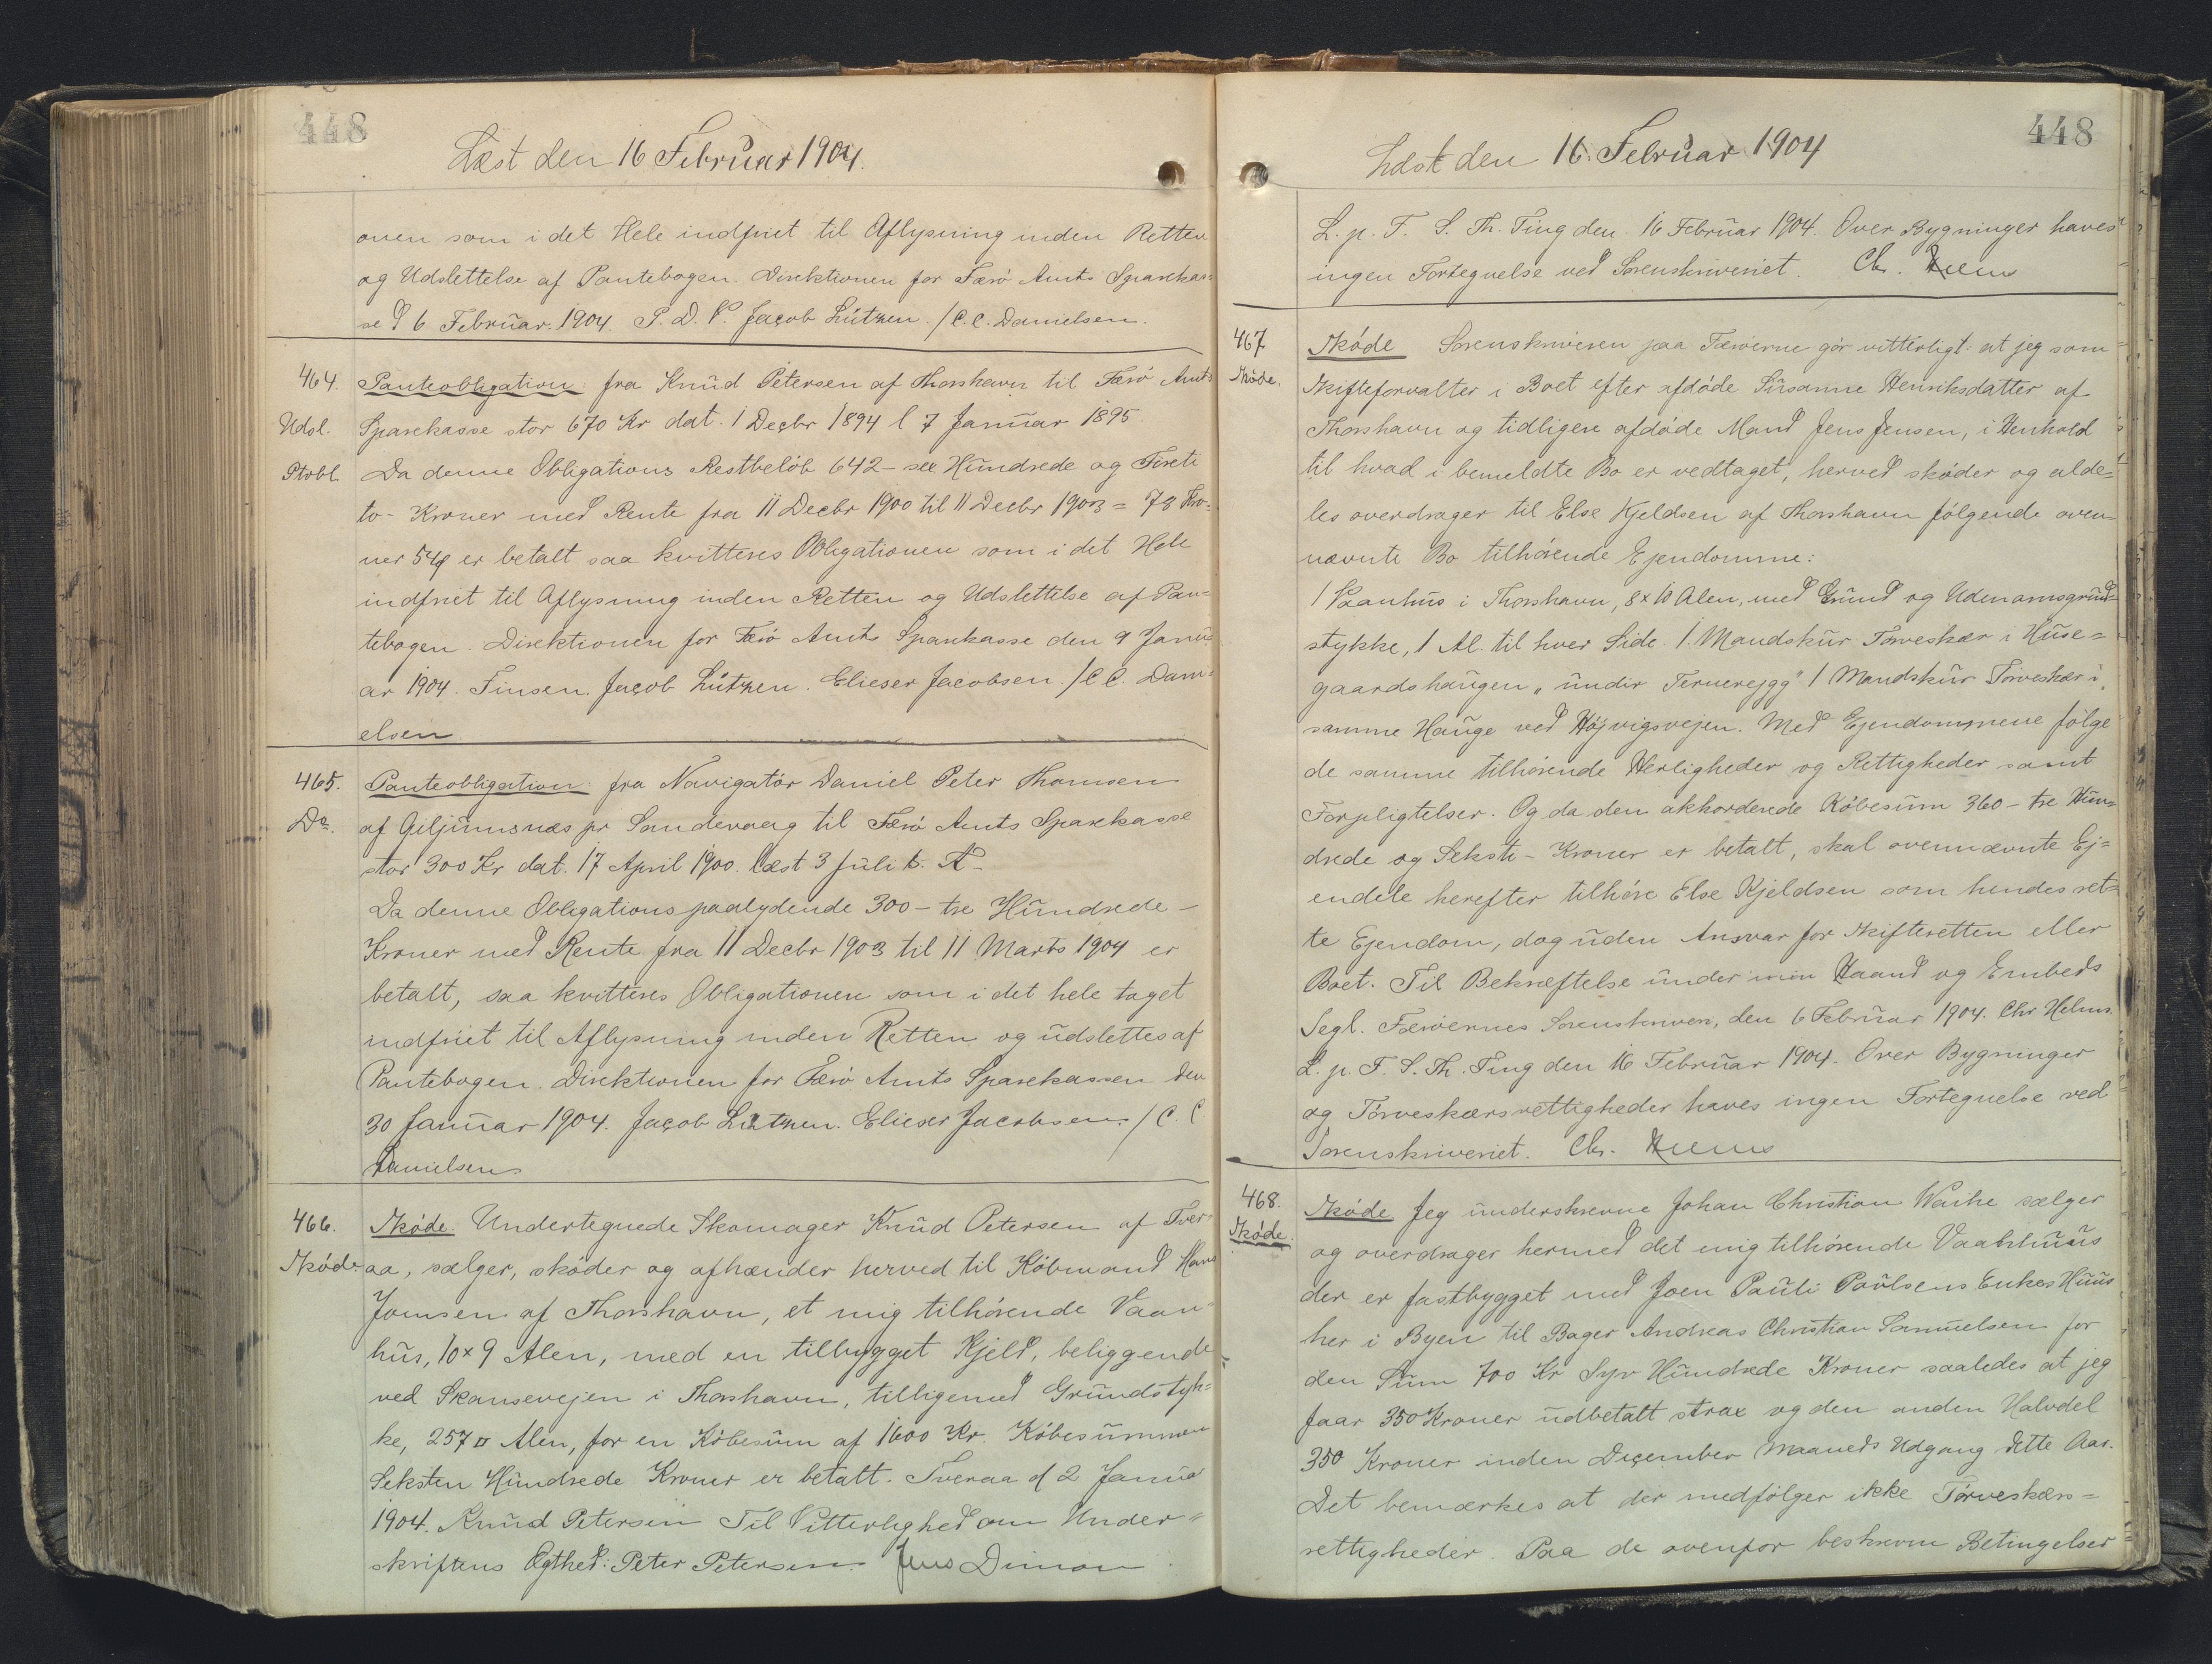 448
Læst den 16 Februar 1904.
onen som i det Hele indfriet til Aflysning inden Retten
og Udslettelse af Pantebogen. Direktionen for Færø Amts Sparekas=
se d 6 Februar 1904. P. D. V. Jacob Lützen. / C. C. Danielsen.
464. Panteobligation: fra Knud Petersen af Thorshavn til Færø Amts
Udsl. Sparekasse stor 670 Kr dat. 1 Decbr 1894 l 7 Januar 1895.
Ptobl. Da denne Obligations Restbeløb 642 - sex Hundrede og Fireti
to - Kroner med Rente fra 11 Decbr 1900 til 11 Decbr 1903 = 78 Kro=
ner 54 ø er betalt saa kvitteres Obligationen som i det Hele
indfriet til Aflysning inden Retten og Udslettelse af Pan=
tebogen. Direktionen for Færø Amts Sparekasse den 9 Janu=
ar 1904. Finsen. Jacob Lützen. Elieser Jacobsen. / C C. Dani=
elsen
465. Panteobligation: fra Navigatør Daniel Peter Thomsen
Do. af Giljumsnæs pr Sandevaag til Færø Amts Sparekasse
stor 300 Kr dat. 17 April 1900. læst 3 Juli s. A.
Da denne Obligations paalydende 300 - tre Hundrede -
Kroner med Rente fra 11 Decbr 1903 til 11 Marts 1904 er
betalt, saa kvitteres Obligationen som i det hele taget
indfriet til Aflysning inden Retten og udslettes af
Pantebogen. Direktionen for Færø Amts Sparekassen den
30 Januar 1904. Jacob Lützen. Elieser Jacobsen. / C. C
Danielsen
466. Skøde. Undertegnede Skomager Knud Petersen af Tver=
Skøde. aa, sælger, skøder og afhænder herved til Købmand Hans
Jomsen af Thorshavn, et mig tilhørende Vaan=
hus, 10 x 9 Alen, med en tilbygget Kjeld, beliggende
ved Skansevejen i Thorshavn, tilligemed Grundstyk=
ke, 257 □ Alen, for en Købesum af 1600 Kr. Købesummen
Seksten Hundrede Kroner er betalt. Tveraa d 2 Januar
1904. Knud Petersen Til Vitterlighed om Under=
skriftens Ægthed: Peter Petersen. Jens Dimon
448
Læst den 16. Februar 1904
L. p. F. S. Th. Ting den 16 Februar 1904. Over Bygninger haves
ingen Fortegnelse ved Sorenskriveriet. Chr. Helms
467 Skøde Sorenskriveren paa Færøerne gör vitterligt: at jeg som
Skøde. Skifteforvalter i Boet efter afdøde Susanne Henriksdatter af
Thorshavn og tidligere afdøde Mand Jens Jensen, i Henhold
til hvad i bemeldte Bo er vedtaget, herved skøder og alde=
les overdrager til Else Kjeldsen af Thorshavn følgende oven=
nævnte Bo tilhørende Ejendomme:
1 Vaanhus i Thorshavn, 8 x 10 Alen, med Grund og Udenomsgrund=
stykke, 1 Al. til hver Side. 1. Mandskur Tørveskær i Huse=
gaardshaugen „undir Ternerejgg" 1 Mandskur Tørveskær i
samme Hauge ved Højvigsvejen. Med Ejendommene følge
de samme tilhørende Herligheder og Rettigheder samt
Forpligtelser. Og da den akkorderede Købesum 360 - tre Hun=
drede og Seksti - Kroner er betalt, skal ovennævnte Ej=
endele herefter tilhøre Else Kjeldsen som hendes ret=
te Ejendom, dog uden Ansvar for Skifteretten eller
Boet. Til Bekræftelse under min Haand og Embeds
Segl. Færøernes Sorenskriveri, den 6 Februar 1904. Chr Helms.
L. p. F. S. Th. Ting den 16 Februar 1904. Over Bygninger
og Tørveskærsrettigheder haves ingen Fortegnelse ved
Sorenskriveriet. Chr. Helms
468. Skøde Jeg underskrevne Johan Christian Warke sælger
Skøde. og overdrager hermed det mig tilhørende Vaahshuus
der er fastbygget med Joen Pauli Poulsens Enkes Huus
her i Byen til Bager Andreas Christian Samuelsen for
den Sum 700 Kr Syv Hundrede Kroner saaledes at jeg
faar 350 Kroner udbetalt strax og den anden Halvdel
350 Kroner inden December Maaneds Udgang dette Aar.
Det bemærkes at der medfølger ikke Tørveskærs=
rettigheder. Paa de ovenfor beskrevne Betingelser